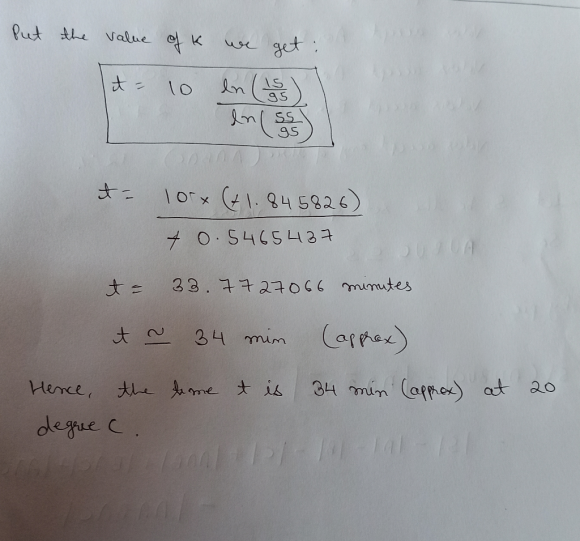 Put the value of K we get :
t = 10 ln(15/95) / ln(55/95)
t = 10 × (-1.845826) / - 0.5465437
t = 33.7727066 minutes
t ≃ 34 min (approx)
Hence, the time t is 34 min (approx) at 20
degree C.